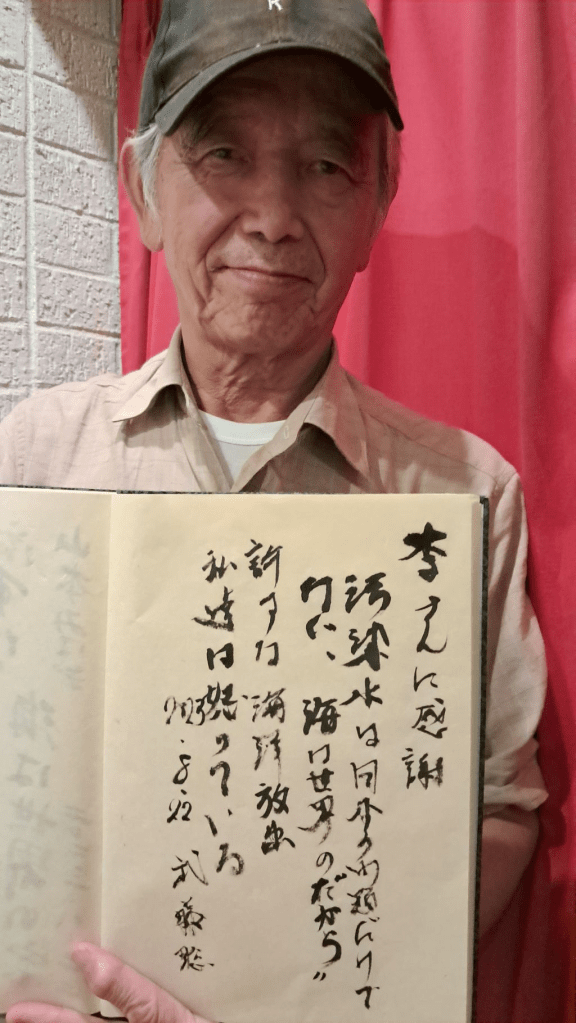 R
李さんに感謝
汚染水は日本の問題だけで
ない、海は世界のだから"
許すな 海洋放出
私達は怒っている
武藤